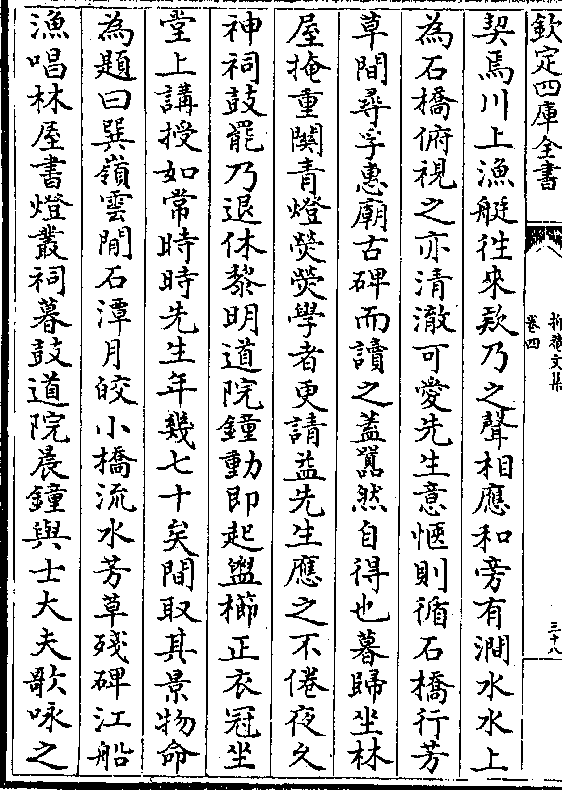 欽定四庫全書
析津文集
卷四
三十八
契焉川上漁艇徃来欵乃之聲相應和旁有澗水水上
為石橋俯視之亦清澈可愛先生意愜則循石橋行芳
草間尋孚惠廟古碑而讀之蓋囂然自得也暮歸坐林
屋掩重闗青燈熒熒學者更請益先生應之不倦夜久
神祠鼓罷乃退休黎明道院鐘動即起盥櫛正衣冠坐
堂上講授如常時時先生年幾七十矣間取其景物命
為題曰巽嶺雲閒石潭月皎小橋流水芳草殘碑江船
漁唱林屋書燈叢祠暮鼓道院晨鐘與士大夫歌咏之